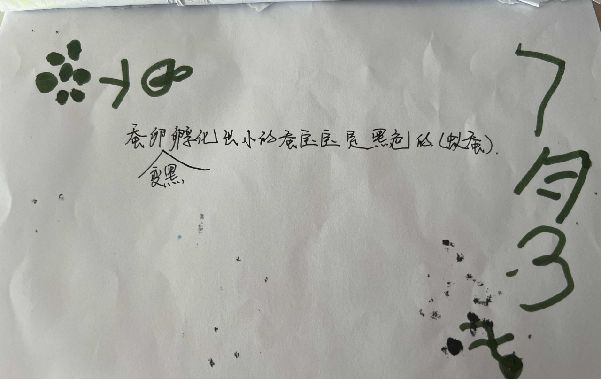 蚕卵孵化出小的蚕宝宝是黑色的(蚁蚕).
变黑
7
月
3